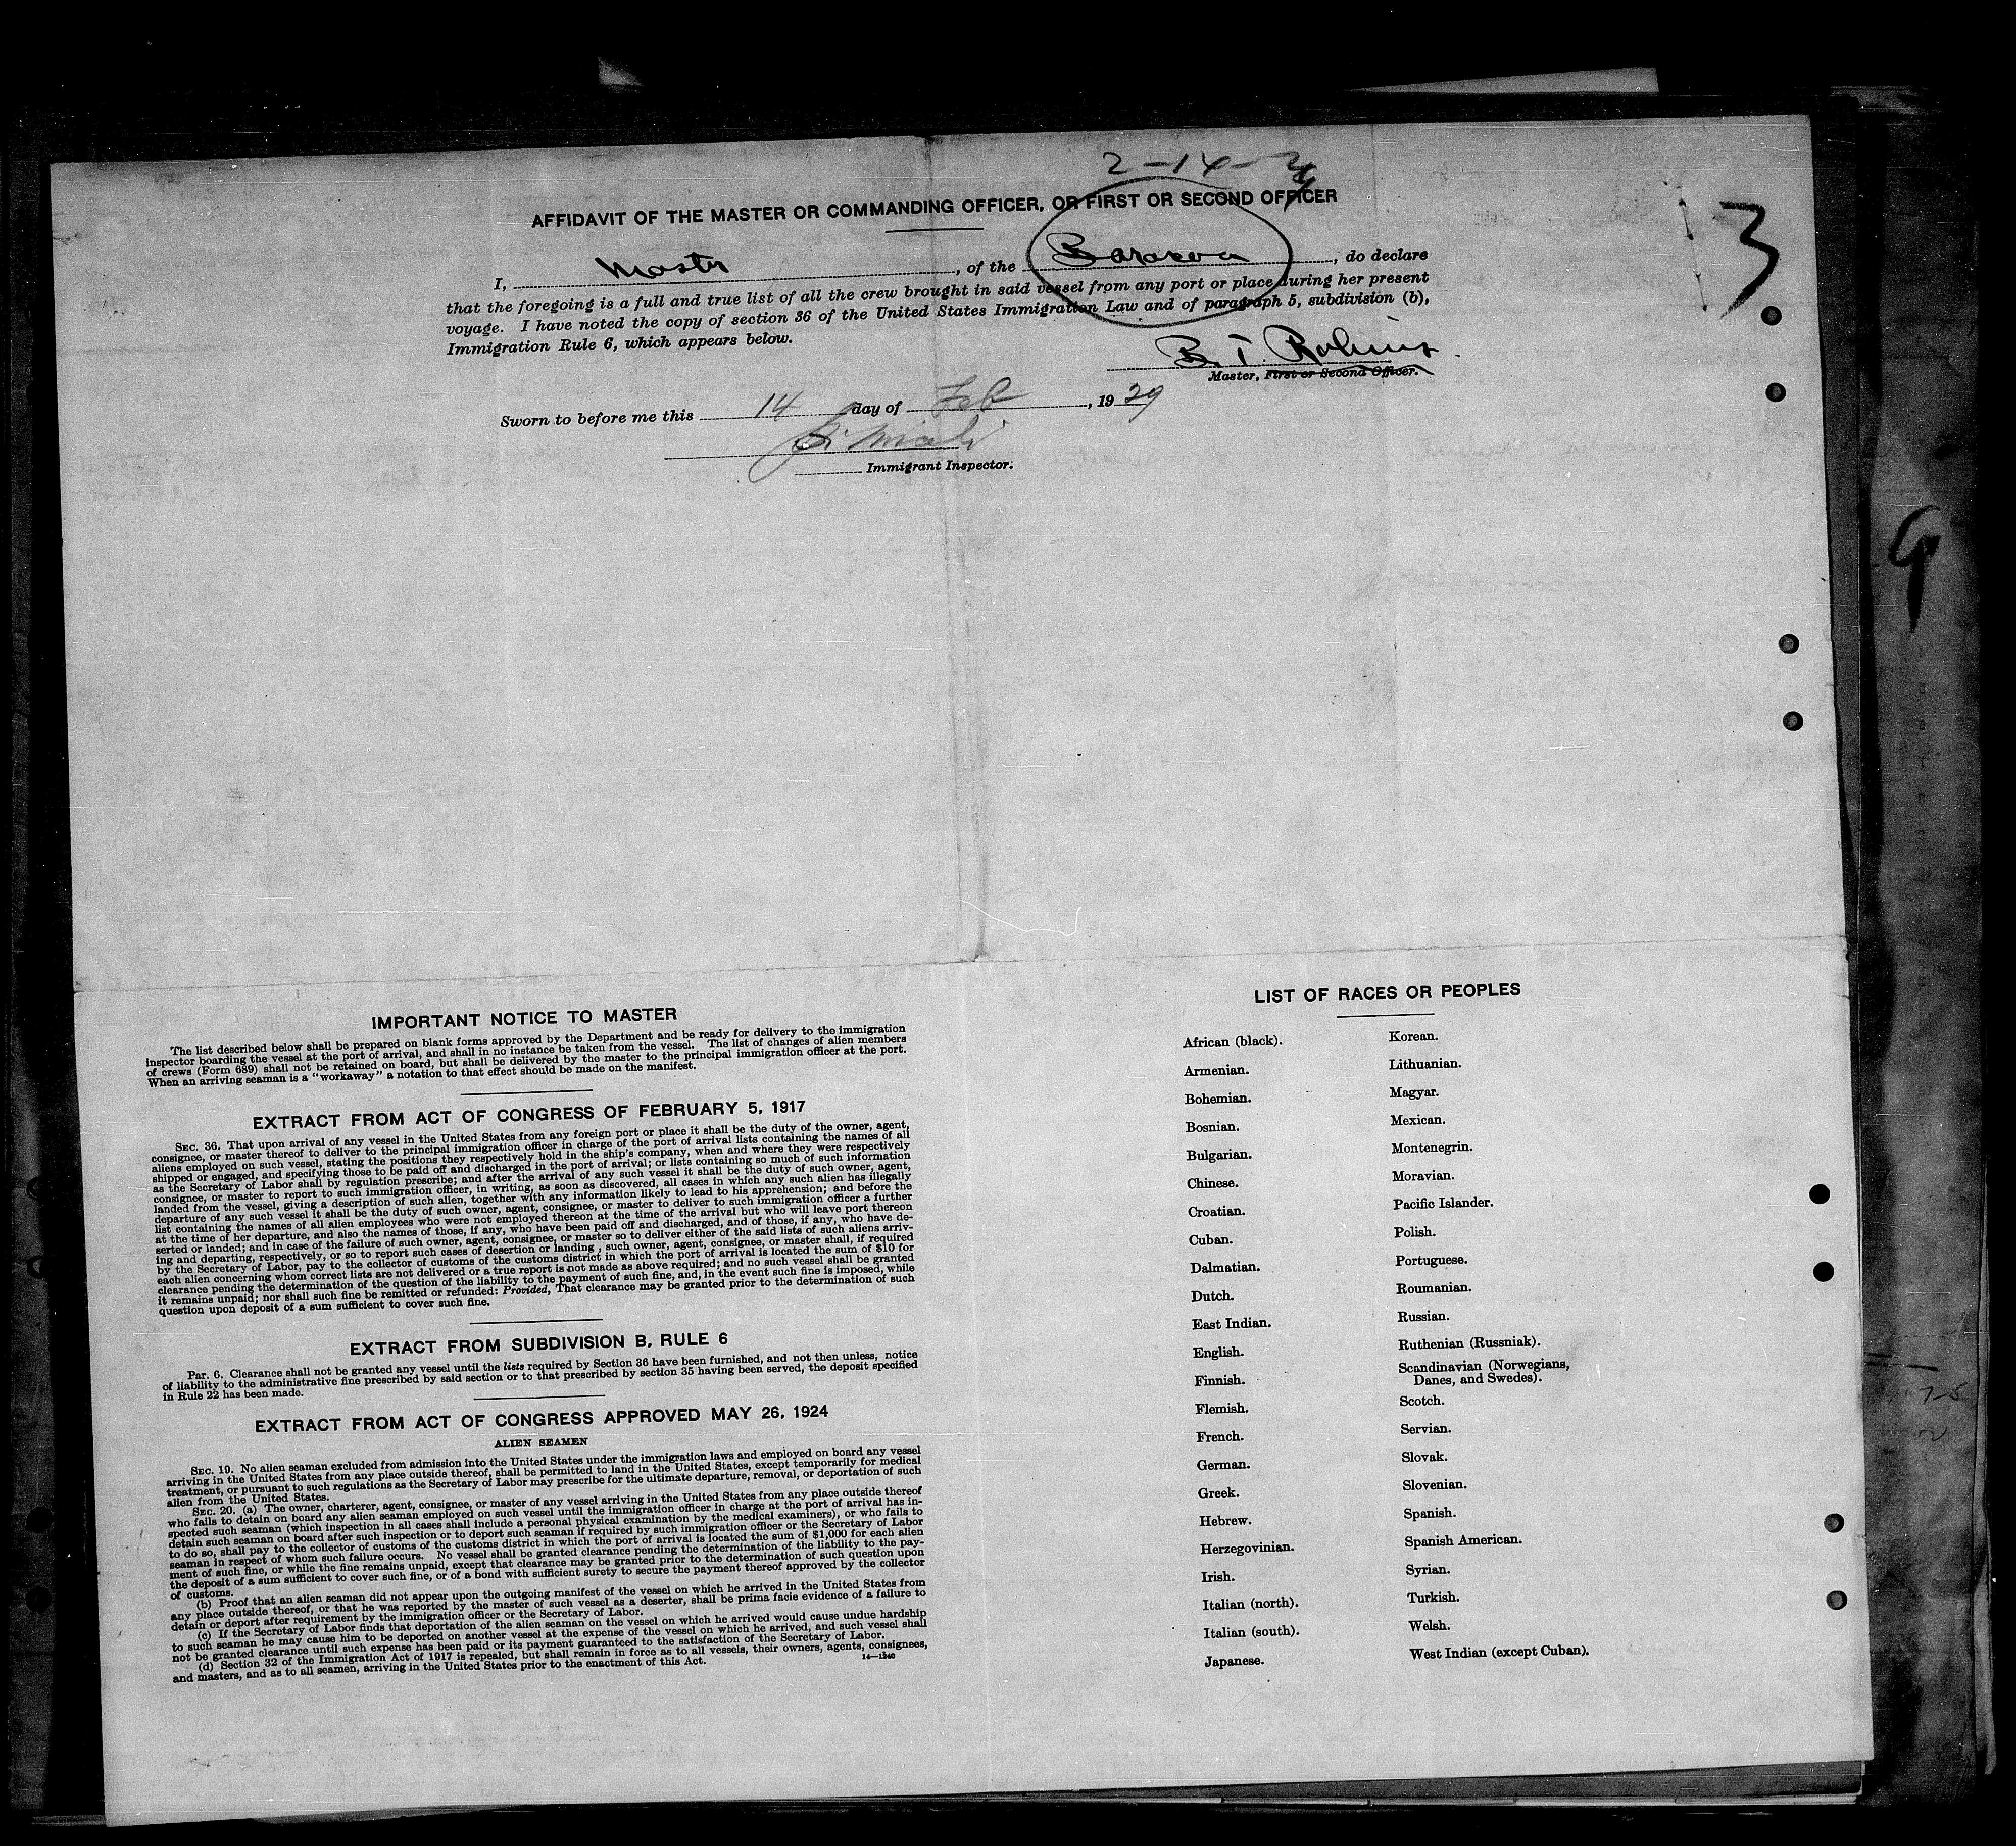 2-14-29
3
AFFIDAVIT OF THE MASTER OR COMMANDING OFFICER, OR FIRST OR SECOND OFFICER
I, Master, of the, do declare
that the foregoing is a full and true list of all the crew brought in said vessel from any port or place during her present
voyage. I have noted the copy of section 36 of the United States Immigration Law and of paragraph 5, subdivision (b),
Immigration Rule 6, which appears below.
B. T.
Master, First or Second Officer.
Sworn to before me this 14 day of Feb, 1929
Immigrant Inspector.
9
IMPORTANT NOTICE TO MASTER
The list described below shall be prepared on blank forms approved by the Department and be ready for delivery to the immigration
inspector boarding the vessel at the port of arrival, and shall in no instance be taken from the vessel. The list of changes of alien members
of crews (Form 689) shall not be retained on board, but shall be delivered by the master to the principal immigration officer at the port.
When an arriving seaman is a "workaway" a notation to that effect should be made on the manifest.
EXTRACT FROM ACT OF CONGRESS OF FEBRUARY 5, 1917
SEC. 36. That upon arrival of any vessel in the United States from any foreign port or place it shall be the duty of the owner, agent,
consignee, or master thereof to deliver to the principal immigration officer in charge of the port of arrival lists containing the names of all
aliens employed on such vessel, stating the positions they respectively hold in the ship's company, when and where they were respectively
shipped or engaged, and specifying those to be paid off and discharged in the port of arrival; or lists containing so much of such information
as the Secretary of Labor shall by regulation prescribe; and after the arrival of any such vessel it shall be the duty of such owner, agent,
consignee, or master to report to such immigration officer, in writing, as soon as discovered, all cases in which any such alien has illegally
landed from the vessel, giving a description of such alien, together with any information likely to lead to his apprehension; and before the
departure of any such vessel it shall be the duty of such owner, agent, consignee, or master to deliver to such immigration officer a further
list containing the names of all alien employees who were not employed thereon at the time of the arrival but who will leave port thereon
at the time of her departure, and also the names of those, if any, who have been paid off and discharged, and of those, if any, who have de-
serted or landed; and in case of the failure of such owner, agent, consignee, or master so to deliver either of the said lists of such aliens arriv-
ing and departing, respectively, or so to report such cases of desertion or landing, such owner, agent, consignee, or master shall, if required
by the Secretary of Labor, pay to the collector of customs of the customs district in which the port of arrival is located the sum of $10 for
each alien concerning whom correct lists are not delivered or a true report is not made as above required; and no such vessel shall be granted
clearance pending the determination of the question of the liability to the payment of such fine, and, in the event such fine is imposed, while
it remains unpaid; nor shall such fine be remitted or refunded: Provided, That clearance may be granted prior to the determination of such
question upon deposit of a sum sufficient to cover such fine.
EXTRACT FROM SUBDIVISION B, RULE 6
Par. 6. Clearance shall not be granted any vessel until the lists required by Section 36 have been furnished, and not then unless, notice
of liability to the administrative fine prescribed by said section or to that prescribed by section 35 having been served, the deposit specified
in Rule 22 has been made.
EXTRACT FROM ACT OF CONGRESS APPROVED MAY 26, 1924
ALIEN SEAMEN
SEC. 19. No alien seaman excluded from admission into the United States under the immigration laws and employed on board any vessel
arriving in the United States from any place outside thereof, shall be permitted to land in the United States, except temporarily for medical
treatment, or pursuant to such regulations as the Secretary of Labor may prescribe for the ultimate departure, removal, or deportation of such
alien from the United States.
SEC. 20. (a) The owner, charterer, agent, consignee, or master of any vessel arriving in the United States from any place outside thereof
who fails to detain on board any alien seaman employed on such vessel until the immigration officer in charge at the port of arrival has in-
spected such seaman (which inspection in all cases shall include a personal physical examination by the medical examiners), or who fails to
detain such seaman on board after such inspection or to deport such seaman if required by such immigration officer or the Secretary of Labor
to do so, shall pay to the collector of customs of the customs district in which the port of arrival is located the sum of $1,000 for each alien
seaman in respect of whom such failure occurs. No vessel shall be granted clearance pending the determination of the liability to the pay-
ment of such fine, or while the fine remains unpaid, except that clearance may be granted prior to the determination of such question upon
the deposit of a sum sufficient to cover such fine, or of a bond with sufficient surety to secure the payment thereof approved by the collector
of customs.
(b) Proof that an alien seaman did not appear upon the outgoing manifest of the vessel on which he arrived in the United States from
any place outside thereof, or that he was reported by the master of such vessel as a deserter, shall be prima facie evidence of a failure to
detain or deport after requirement by the immigration officer or the Secretary of Labor.
(c) If the Secretary of Labor finds that deportation of the alien seaman on the vessel on which he arrived would cause undue hardship
to such seaman he may cause him to be deported on another vessel at the expense of the vessel on which he arrived, and such vessel shall
not be granted clearance until such expense has been paid or its payment guaranteed to the satisfaction of the Secretary of Labor.
(d) Section 32 of the Immigration Act of 1917 is repealed, but shall remain in force as to all vessels, their owners, agents, consignees,
and masters, and as to all seamen, arriving in the United States prior to the enactment of this Act.
14—1240
LIST OF RACES OR PEOPLES
African (black).
Armenian.
Bohemian.
Bosnian.
Bulgarian.
Chinese.
Croatian.
Cuban.
Dalmatian.
Dutch.
East Indian.
English.
Finnish.
Flemish.
French.
German.
Greek.
Hebrew.
Herzegovinian.
Irish.
Italian (north).
Italian (south).
Japanese.
Korean.
Lithuanian.
Magyar.
Mexican.
Montenegrin.
Moravian.
Pacific Islander.
Polish.
Portuguese.
Roumanian.
Russian.
Ruthenian (Russniak).
Scandinavian (Norwegians,
Danes, and Swedes).
Scotch.
Servian.
Slovak.
Slovenian.
Spanish.
Spanish American.
Syrian.
Turkish.
Welsh.
West Indian (except Cuban).